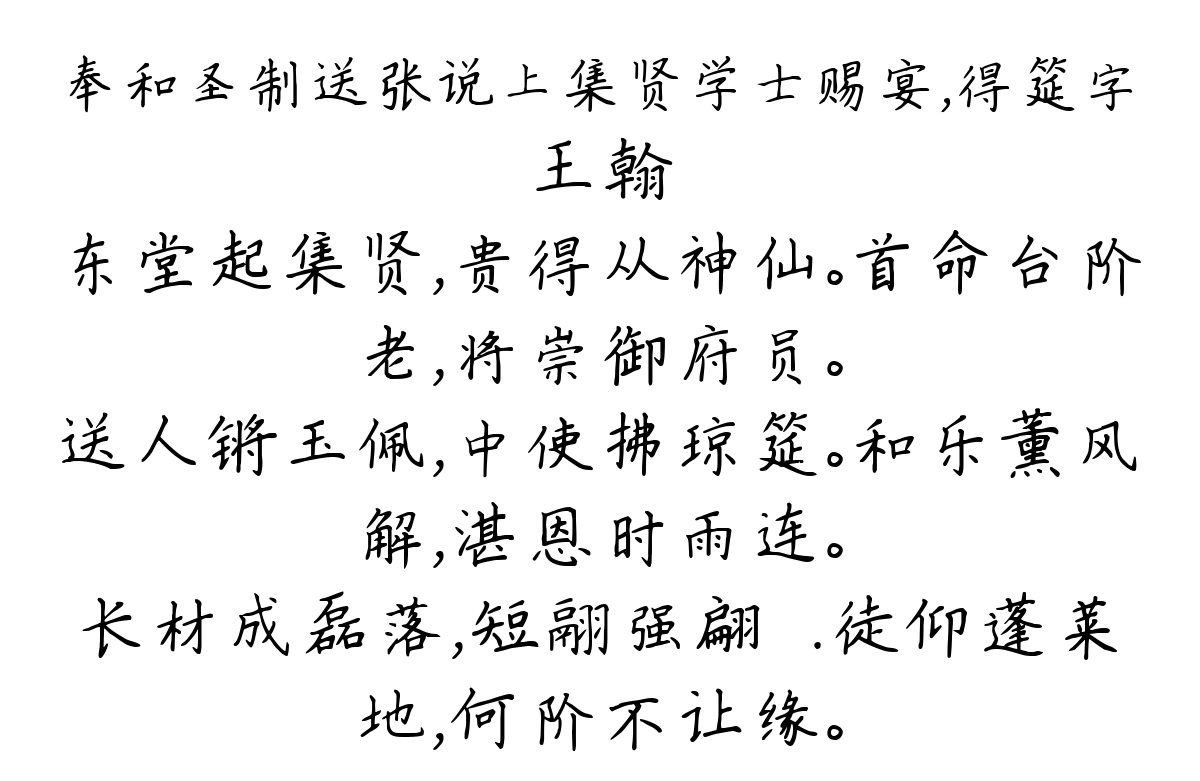 奉和圣制送张说上集贤学士赐宴,得筵字
王翰
东堂起集贤,贵得从神仙。首命台阶
老,将崇御府员。
送人锵玉佩,中使拂琼筵。和乐薰风
解,湛恩时雨连。
长材成磊落,短翮强翩 .徒仰蓬莱
地,何阶不让缘。